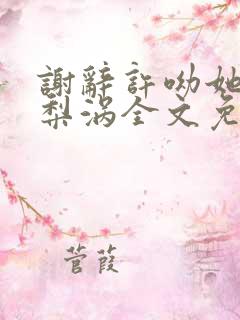 謝辭許呦她
梨涡全文免
菅葭